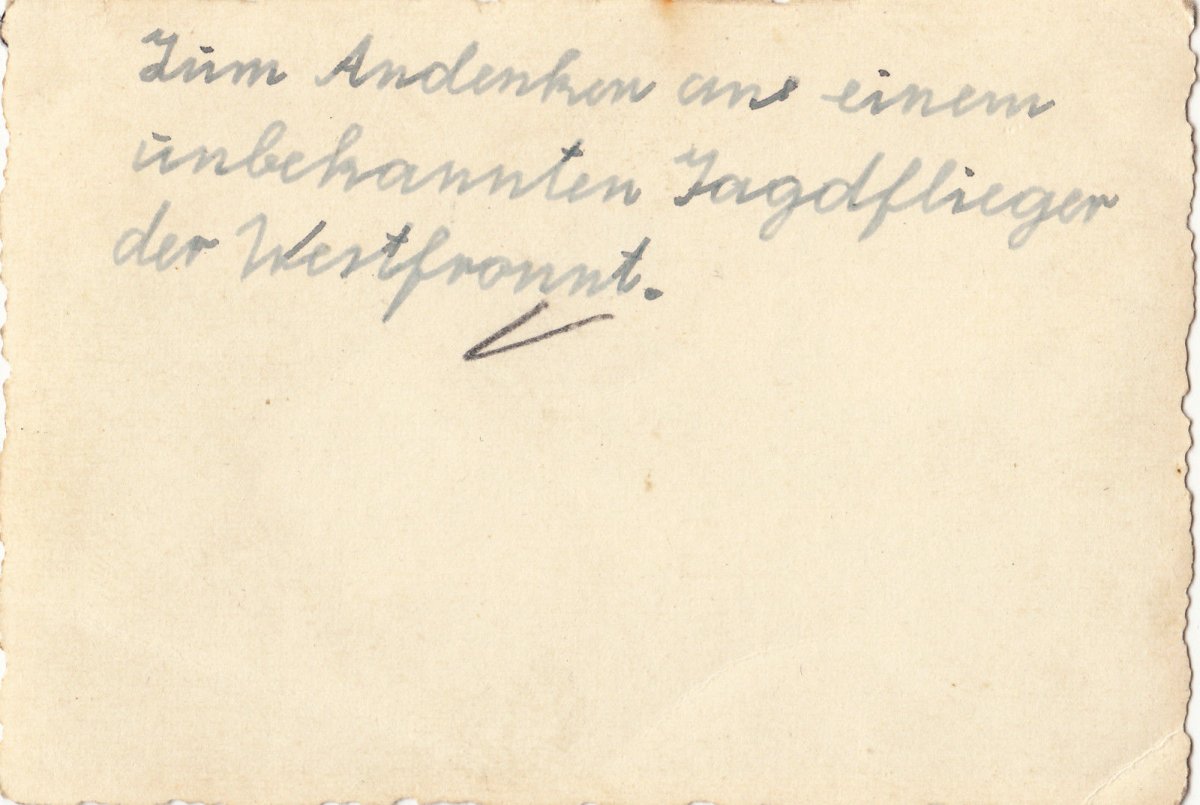 Zum Andenken an einem
unbekannten Jagdflieger
der Westfronnt.